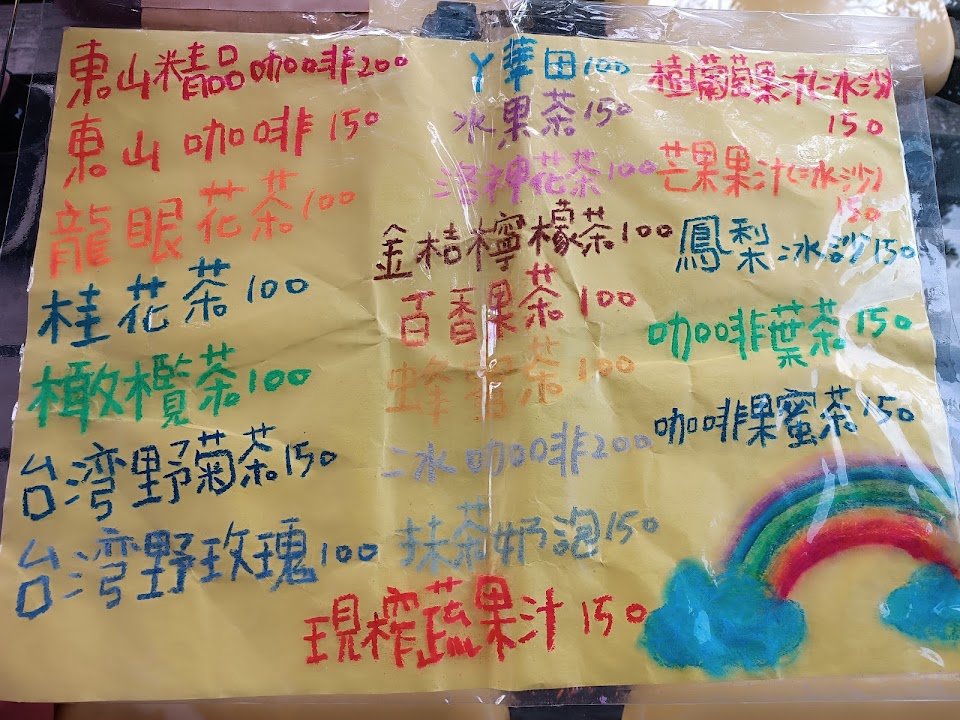 東山精品咖啡200
東山咖啡150
龍眼花茶100
桂花茶100
橄欖茶100
台湾野菊茶150
台湾野玫瑰100
丫華田100
水果茶150
洛神花茶100
金桔檸檬茶100
百香果茶100
蜂蜜茶100
冰咖啡200
抹茶奶泡150
現榨蔬果汁150
樹葡萄果汁(冰沙)
150
芒果果汁(冰沙)
150
鳳梨冰沙150
咖啡葉茶150
咖啡果蜜茶150